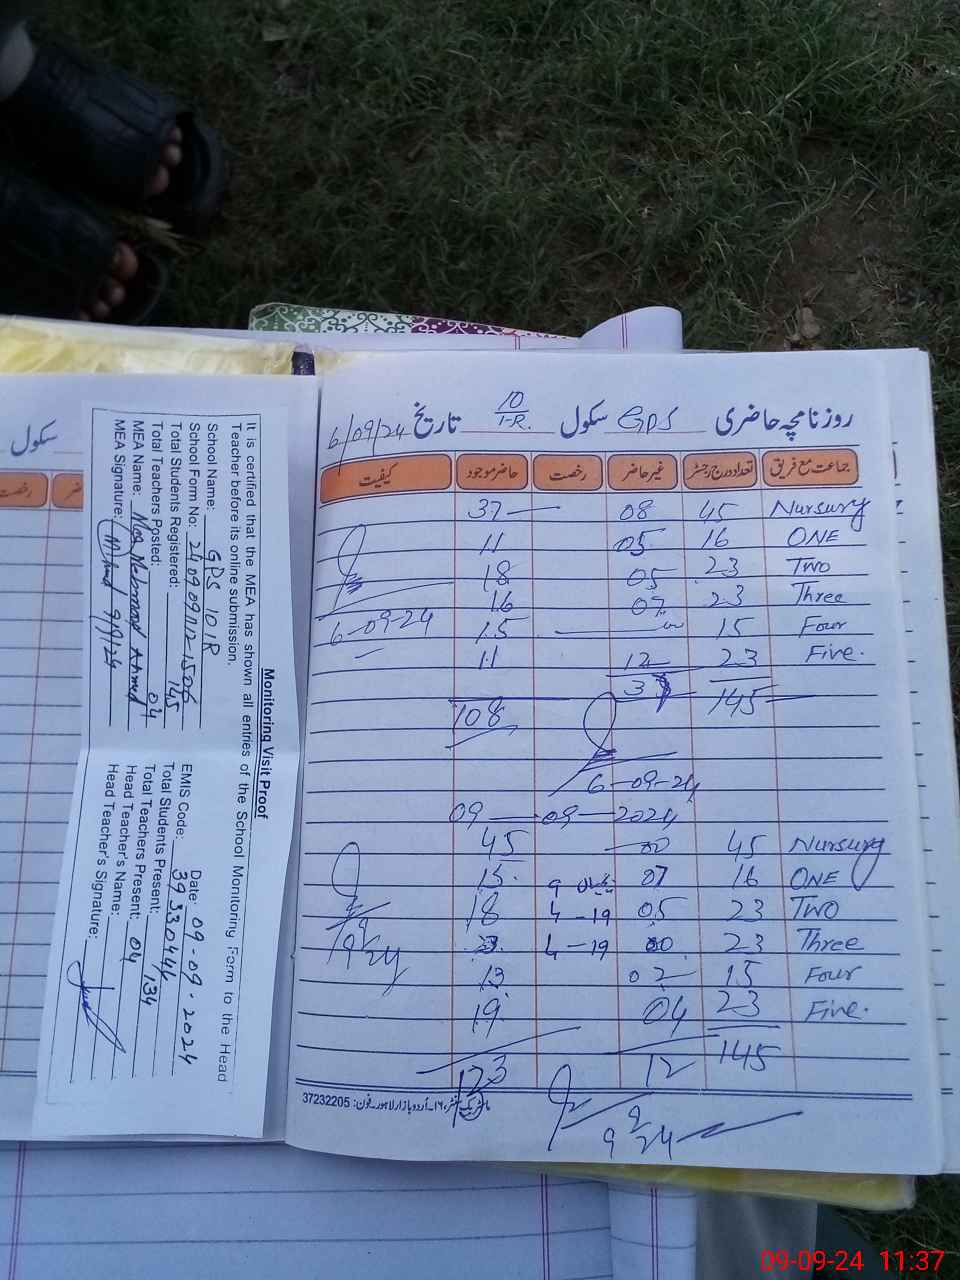 روزنامچہ حاضری سکول GPS 10/1-R. تاریخ 6/09/24
جماعت مع فریق تعداد درج رجسٹر غیر حاضر رخصت حاضر موجود کیفیت
Nursury 45 08 37
ONE 16 05 11
Two 23 05 18
Three 23 07 16
Four 15 15
Five. 23 12 11
145 37
108
6-09-24
6-09-24
09-09-2024
Nursury 45 00 45
ONE 16 07 15
Two 23 05 4-19 18
Three 23 00 4-19 23
Four 15 02 13
Five. 23 04 19
145 12 123
9/9/24
9/9/24
37232205
سکول
رخصت
Monitoring Visit Proof
It is certified that the MEA has shown all entries of the School Monitoring Form to the Head
Teacher before its online submission.
School Name: GPS 10 1R Date: 09-09-2024
School Form No: EMIS Code: 39330446
Total Students Registered: 145 Total Students Present: 134
Total Teachers Posted: 04 Total Teachers Present: 04
MEA Name: Mahmood Ahmed Head Teacher's Name:
MEA Signature: 9/9/24 Head Teacher's Signature:
09-09-24 11:37